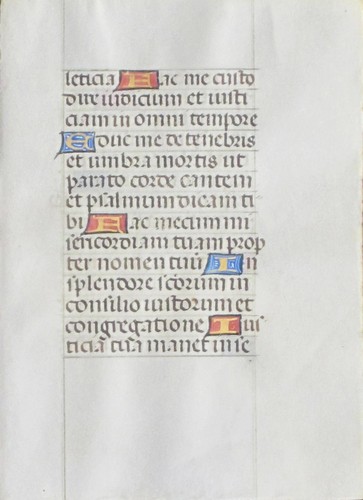 leticia Fac me custo
dire iudicium et iusti
ciam in omni tempore
Educ me de tenebris
et umbra mortis ut
parato corde cantem
et psalmum dicam ti
bi Fac mecum mi
sericordiam tuam prop
ter nomen tuū In
splendore scorum in
consilio iustorum et
congregatione Ius
ticia tua manet in se